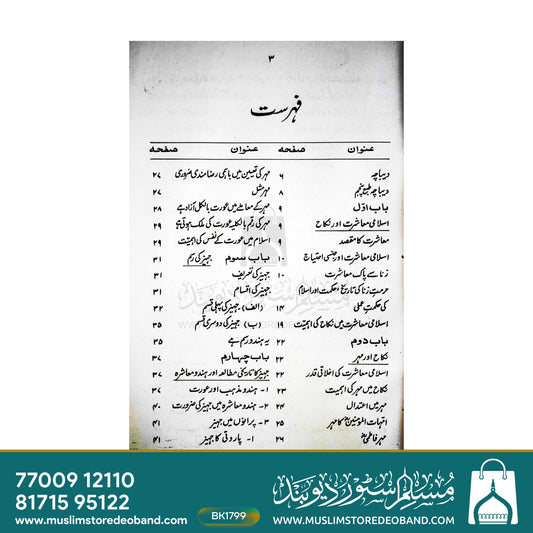 ۳
فہرست
عنوان صفحہ عنوان صفحہ
دیباچہ ۶
دیباچہ طبع پنجم ۸
باب اوّل ۹
اسلامی معاشرت اور نکاح ۹
معاشرت کا مقصد ۹
اسلامی معاشرت اور جنسی احتیاج ۱۰
زنا سے پاک معاشرت ۱۰
حرمتِ زنا کی تاریخ، حکمت اور اسلام
کی حکمتِ عملی ۱۴
اسلامی معاشرت میں نکاح کی اہمیت ۱۹
باب دوم ۲۲
نکاح اور مہر ۲۲
اسلامی معاشرت کی اخلاقی قدر ۲۲
نکاح میں مہر کی اہمیت ۲۳
مہر میں اعتدال ۲۴
امہات المومنینؓ کا مہر ۲۵
مہر فاطمیؓ ۲۶
مہر کی تعیین میں باہمی رضا مندی ضروری ۲۷
مہر مثل ۲۷
مہر کے معاملے میں عورت بالکل آزاد ہے ۲۸
مہر کی رقم بالکلیہ عورت کی ملک ہوتی ہے ۲۹
اسلام میں عورت کے نفس کی اہمیت ۲۹
باب سوم جہیز کی رسم ۳۱
جہیز کی تعریف ۳۱
جہیز کی اقسام ۳۱
(الف) جہیز کی پہلی قسم ۳۲
(ب) جہیز کی دوسری قسم ۳۵
یہ ہندو رسم ہے ۳۵
باب چہارم ۳۷
جہیز کا تاریخی مطالعہ اور ہندو معاشرہ ۳۷
۱۔ ہندو مذہب اور عورت ۳۷
۲۔ ہندو معاشرہ میں جہیز کی ضرورت ۴۰
۳۔ پرانوں میں جہیز ۴۱
۱۔ پاروتی کا جہیز ۴۱
مسلم سٹور دیوبند
WWW.MUSLIMSTOREDEOBAND.COM
77009 12110
81715 95122
www.muslimstoredeoband.com
BK1799
مسلم سٹور دیوبند
WWW.MUSLIMSTOREDEOBAND.COM